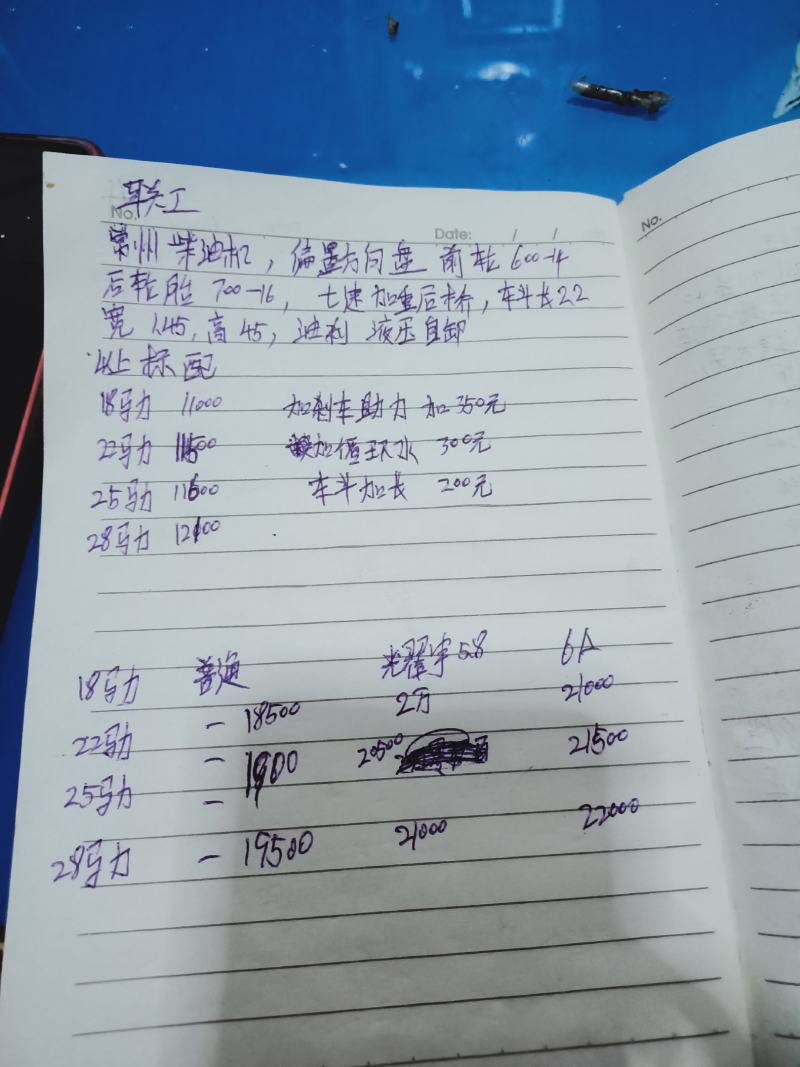 联工
No.
Date: / /
No.
常州柴油机，偏置方向盘 前轮600-14
后轮胎 700-16，七速加重后桥，车斗长2.2
宽1.45，高45，油刹 液压自卸
以上标配
18马力 11000 加刹车助力 加350元
22马力 11500 加循环水 300元
25马力 11600 车斗加长 200元
28马力 12100
18马力 普通 光耀宇 5.8 6A
22马力 — 18500 2万 21000
25马力 — 1900 20500 21500
28马力 — 19500 21000 22000